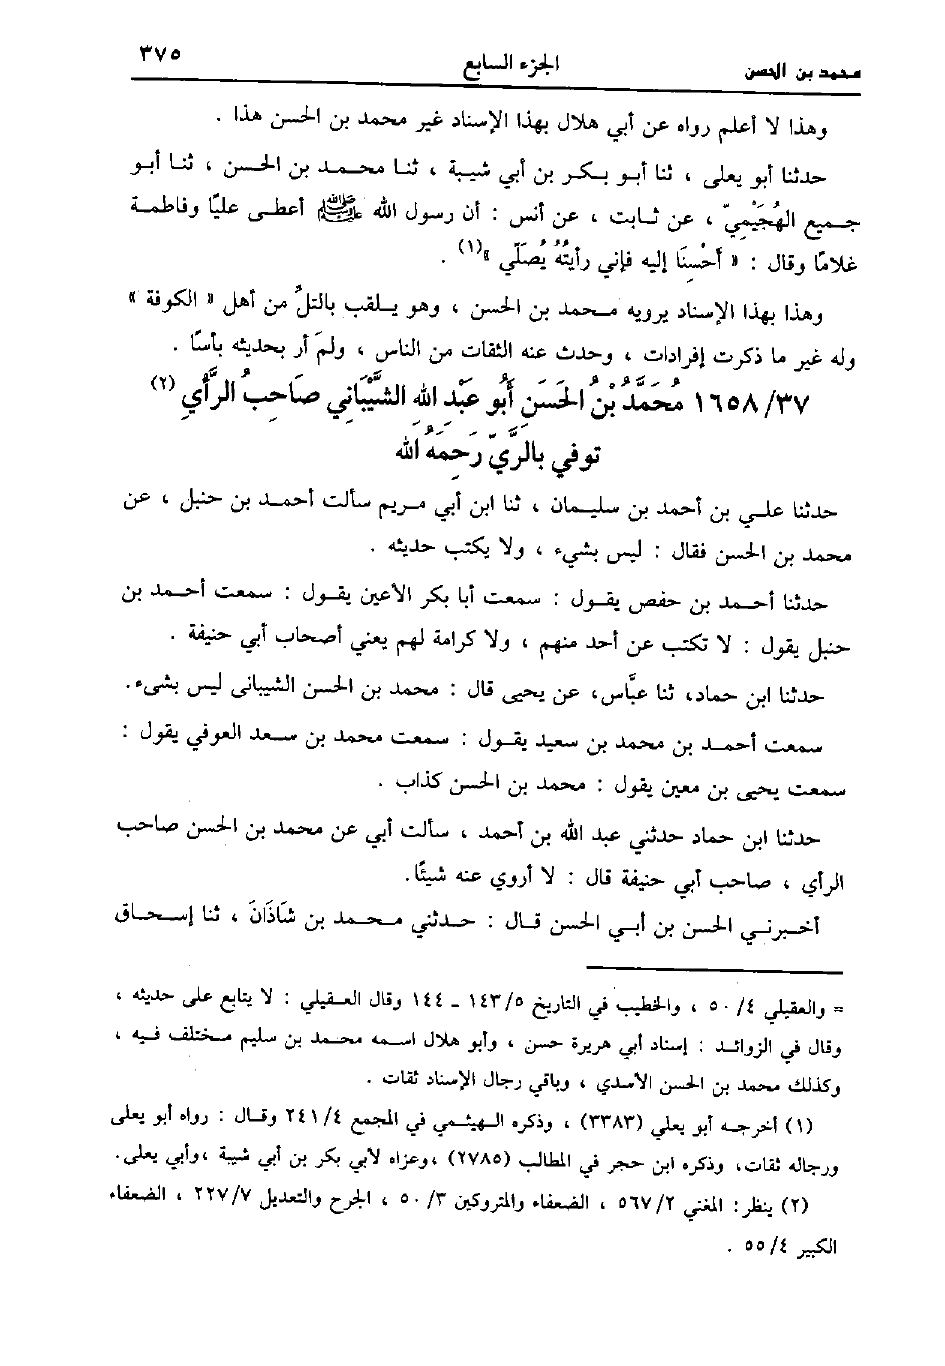 محمد بن الحسن الجزء السابع ٣٧٥
وهذا لا أعلم رواه عن أبي هلال بهذا الإسناد غير محمد بن الحسن هذا .
حدثنا أبو يعلى ، ثنا أبو بكر بن أبي شيبة ، ثنا محمد بن الحسن ، ثنا أبو
جميع الهُجَيْمِيّ ، عن ثابت ، عن أنس : أن رسول الله ﷺ أعطى عليًا وفاطمة
غلامًا وقال : « أَحْسِنَا إليه فإني رأيتُهُ يُصَلِّي »(١) .
وهذا بهذا الإسناد يرويه محمد بن الحسن ، وهو يلقب بالتلُّ من أهل « الكوفة »
وله غير ما ذكرت إفرادات ، وحدث عنه الثقات من الناس ، ولم أر بحديثه بأسًا .
١٦٥٨/٣٧ مُحَمَّدُ بْنُ الحَسَنِ أَبُو عَبْدِ الله الشَّيْبَانِي صَاحِبُ الرَّأْيِ (٢)
توفي بالرَّيِّ رَحِمَهُ الله
حدثنا علي بن أحمد بن سليمان ، ثنا ابن أبي مريم سألت أحمد بن حنبل ، عن
محمد بن الحسن فقال : ليس بشيء ، ولا يكتب حديثه .
حدثنا أحمد بن حفص يقول : سمعت أبا بكر الأعين يقول : سمعت أحمد بن
حنبل يقول : لا تكتب عن أحد منهم ، ولا كرامة لهم يعني أصحاب أبي حنيفة .
حدثنا ابن حماد، ثنا عبَّاس، عن يحيى قال : محمد بن الحسن الشيبانى ليس بشىء.
سمعت أحمد بن محمد بن سعيد يقول : سمعت محمد بن سعد العوفي يقول :
سمعت يحيى بن معين يقول : محمد بن الحسن كذاب .
حدثنا ابن حماد حدثني عبد الله بن أحمد ، سألت أبي عن محمد بن الحسن صاحب
الرأي ، صاحب أبي حنيفة قال : لا أروي عنه شيئًا.
أخبرني الحسن بن أبي الحسن قال : حدثني محمد بن شَاذَانَ ، ثنا إسحاق
= والعقيلي ٥٠/٤ ، والخطيب في التاريخ ١٤٣/٥ ـ ١٤٤ وقال العقيلي : لا يتابع على حديثه ،
وقال في الزوائد : إسناد أبي هريرة حسن ، وأبو هلال اسمه محمد بن سليم مختلف فيه ،
وكذلك محمد بن الحسن الأسدي ، وباقي رجال الإسناد ثقات .
(١) أخرجه أبو يعلي (٣٣٨٣) ، وذكره الهيثمي في المجمع ٢٤١/٤ وقال : رواه أبو يعلى
ورجاله ثقات، وذكره ابن حجر في المطالب (٢٧٨٥) ،وعزاه لأبي بكر بن أبي شيبة ،وأبي يعلى.
(٢) ينظر: المغني ٥٦٧/٢ ، الضعفاء والمتروكين ٥٠/٣ ، الجرح والتعديل ٢٢٧/٧ ، الضعفاء
الكبير ٥٥/٤ .